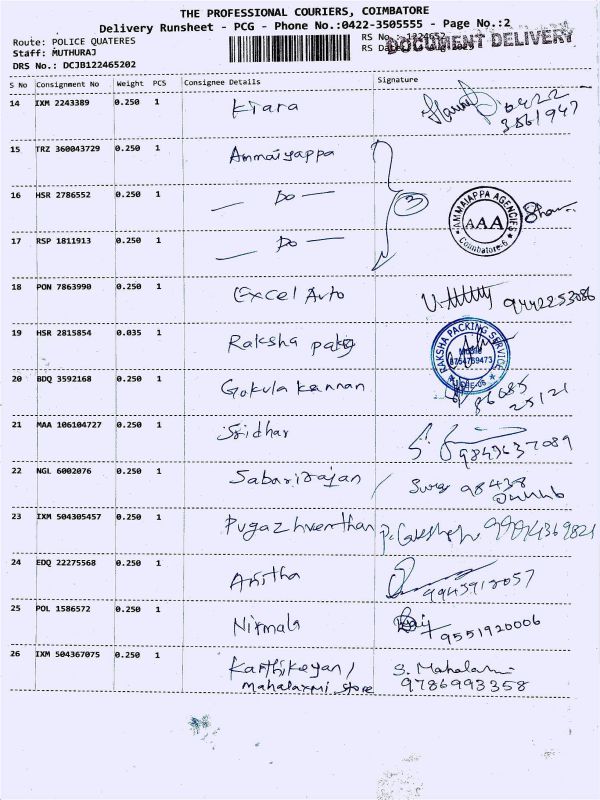 THE PROFESSIONAL COURIERS, COIMBATORE
Delivery Runsheet - PCG - Phone No.:0422-3505555 - Page No.:2
Route: POLICE QUATERES
Staff: MUTHURAJ
DRS No.: DCJB122465202
RS No
RS Da
DOCUMENT DELIVERY
S No Consignment No Weight PCS Consignee Details Signature
14 IXM 2243389 0.250 1 Kiara 0422
3561947
15 TRZ 360043729 0.250 1 Ammaiyappa
16 HSR 2786552 0.250 1 — Do — 3
AMMAIAPPA AGENCIES
AAA
Coimbatore-6
17 RSP 1811913 0.250 1 — Do —
18 PON 7863990 0.250 1 Excel Auto 9442253086
19 HSR 2815854 0.035 1 Raksha
RAKSHA PACKING SERVICE
20 BDQ 3592168 0.250 1 Gokula Kannan 86685
25121
21 MAA 106104727 0.250 1 Sridhar 9843637089
22 NGL 6002076 0.250 1 Sabarirajan 98438
23 IXM 504305457 0.250 1 Pugazhventhan
24 EDQ 22275568 0.250 1 Anitha 9945912057
25 POL 1586572 0.250 1 Nirmala 9551920006
26 IXM 504367075 0.250 1 Karthikeyan / S. Mahalaxmi
mahalaxmi store 9786993358